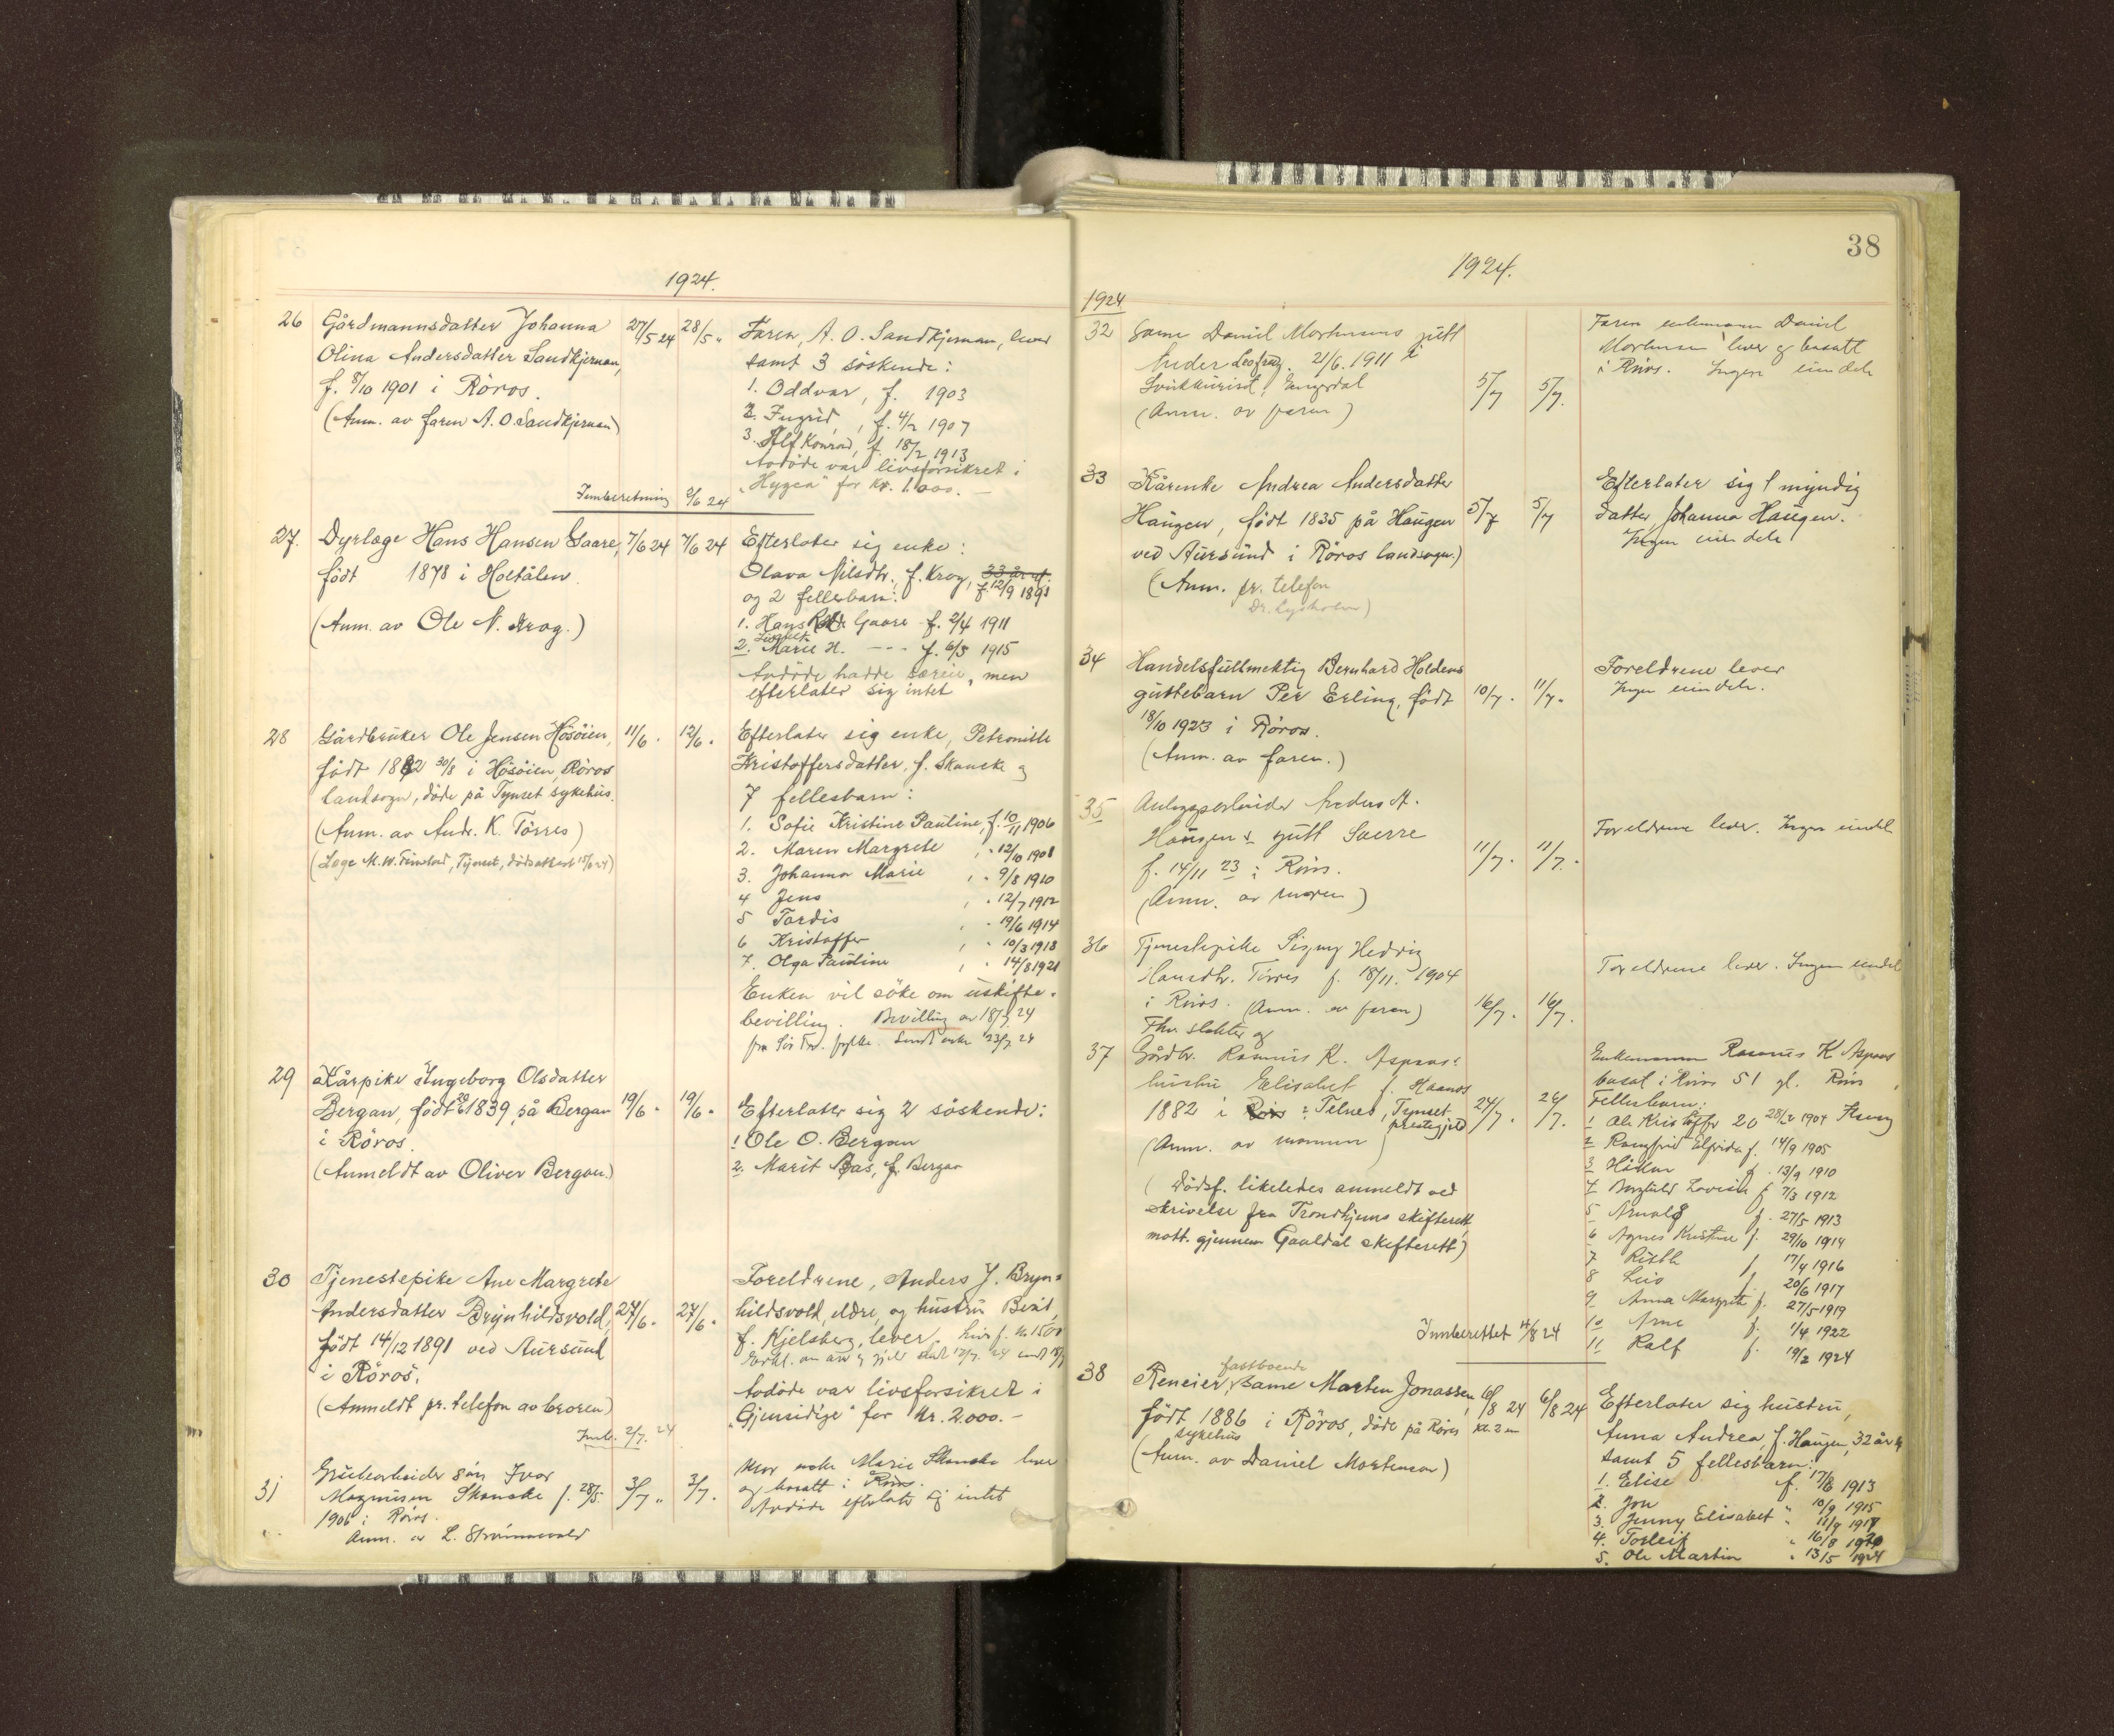 1924.
26 Gårdmannsdatter Johanna 27/5 24 28/5 „ Faren, A. O. Sandkjernan, lever
Olina Andersdatter Sandkjernan, samt 3 söskende:
f. 8/10 1901 i Röros. 1. Oddvar, f. 1903
(Anm. av faren A. O. Sandkjernan) 2. Ingrid, f. 4/2 1907
3. Alf Konrad, f. 18/2 1913
Avdöde var livsforsikret i
„Hygea" for kr. 1.000. —
Innberetning 2/6 24
27. Dyrlæge Hans Hansen Gaare, 7/6 24 7/6 24 Efterlater sig enke:
födt 1878 i Holtålen. Olava Nilsdtr., f. Krog, 33 år gl. f. 12/9 1891
og 2 fellesbarn:
(Anm. av Ole N. Krog.) 1. Hans Gaare f. 2/4 1911
2. Marie H. - - - f. 6/5 1915
Avdöde hadde særeie, men
efterlater sig intet
28 Gårdbruker Ole Jensen Hösöien, 11/6 . 12/6 . Efterlater sig enke, Petronille
födt 1882 30/8 i Hösöien, Röros Kristoffersdatter, f. Skancke og
landsogn, döde på Tynset sykehus. 7 fellesbarn:
(Anm. av Andr. K. Törres) 1. Sofie Kristine Pauline, f. 10/11 1906
(Læge M. W. Tynset, dödsattest 2. Maren Margrete 12/10 1908
3. Johanna Marie 9/8 1910
4 Jens 12/7 1912
5 Tordis 19/6 1914
6 Kristoffer 10/3 1918
7. Olga Pauline 14/8 1921
Enken vil söke om uskifte-
bevilling. Bevilling av 18/7 24
fra Sör Tr. fylke. Sendt enke 23/7 24
29 Kårpike Ingeborg Olsdatter
Bergan, födt 1839 på Bergan 19/6 . 19/6 . Efterlater sig 2 söskende:
i Röros. 1 Ole O. Bergan
(Anmeldt av Oliver Bergan.) 2. Marit Aas, f. Bergan
30 Tjenestepike Ane Margrete Foreldrene, Anders J. Bryn=
Andersdatter Brynhildsvold, 27/6 . 27/6 . hildsvold, eldre, og hustru Berit,
födt 14/12 1891 ved Aursund f. Kjelsberg, lever.
i Röros.
(Anmeldt pr. telefon av broren) Avdöde var livsforsikret i
„Gjensidige" for Kr. 2.000. —
Innb. 2/7. 24
31 Grubearbeider sön Ivar 3/7 „ 3/7 . Mor enke Marie Skancke lever
Magnusen Skancke f. 28/5. og bosatt i Röros.
1906 i Röros. Avdöde efterlater sig intet
Anm. av L. Strömsvold
38
1924.
1924
32 Same Daniel Mortensens gutt Faren enkemann Daniel
Ander 21/6. 1911 i Mortensen lever og bosatt
Svukkuriset, Engerdal 5/7 5/7. i Röros. Ingen eiendele
(Anm. av faren)
33 Kårenke Andrea Andersdatter Efterlater sig 1 myndig
Haugen, födt 1835 på Haugen 5/7 5/7 datter, Johanna Haugen.
ved Aursund i Röros landsogn.) Ingen eiendele
(Anm. pr. telefon
Dr. Lysholm)
34 Handelsfullmektig Bernhard Holdens Foreldrene lever
guttebarn Per Erling, födt 10/7 . 11/7 . Ingen eiendele.
18/10 1923 i Röros.
(Anm. av faren.)
35 Anleggsarbeider Anders A.
Haugens gutt Sverre 11/7 . 11/7 . Foreldrene lever. Ingen eiendel
f. 14/11 23 i Röros.
(Anm. av moren)
36 Tjenestepike Signy Hedvig
Hansdtr. Törres f. 18/11. 1904 Foreldrene lever. Ingen eiendel
i Röros. (Anm. av faren) 16/7 . 16/7 .
Fhv. slakter og
37 Gårdbr. Rasmus K. Aspaas' Enkemannen Rasmus K Aspaas
hustru Elisabet f. Haanes bosat i Röros 51 gl. Röros
1882 i Röros i Telnes, Tynset prestegjeld 24/7 . 26/7 . Fellesbarn:
(Anm. av mannen) 1 Ole Kristoffer 20 28/2 1904
2 Ramfrid Elfrida f. 14/9 1905
(Dödsf. likeledes anmeldt ved 3 Håkon f. 13/9 1910
skrivelse fra Trondhjems skifterett 4 Borghild Lovise f 7/3 1912
mott. gjennem Gauldal skifterett) 5 Arnold f. 27/5 1913
6 Agnes Kristine f. 29/10 1914
7 Ruth f. 17/4 1916
8 Leio f. 20/6 1917
9 Anna Margrete f. 27/5 1919
Innberettet 4/8 24 10 Arne f. 1/4 1922
11 Ralf f. 19/2 1924
38 Reneier, fastboende Same Morten Jonassen, 6/8 24 6/8 24 Efterlater sig hustru,
födt 1886 i Röros, döde på Röros sykehus kl. 2 em Anna Andrea, f. Haugen, 32 år gl
(Anm. av Daniel Mortenson) samt 5 fellesbarn:
1. Elise f. 17/6 1913
2. Jon „ 10/9 1915
3. Jenny Elisabet „ 11/9 1917
4. Torleif „ 16/8 1920
5. Ole Martin „ 13/5 1924